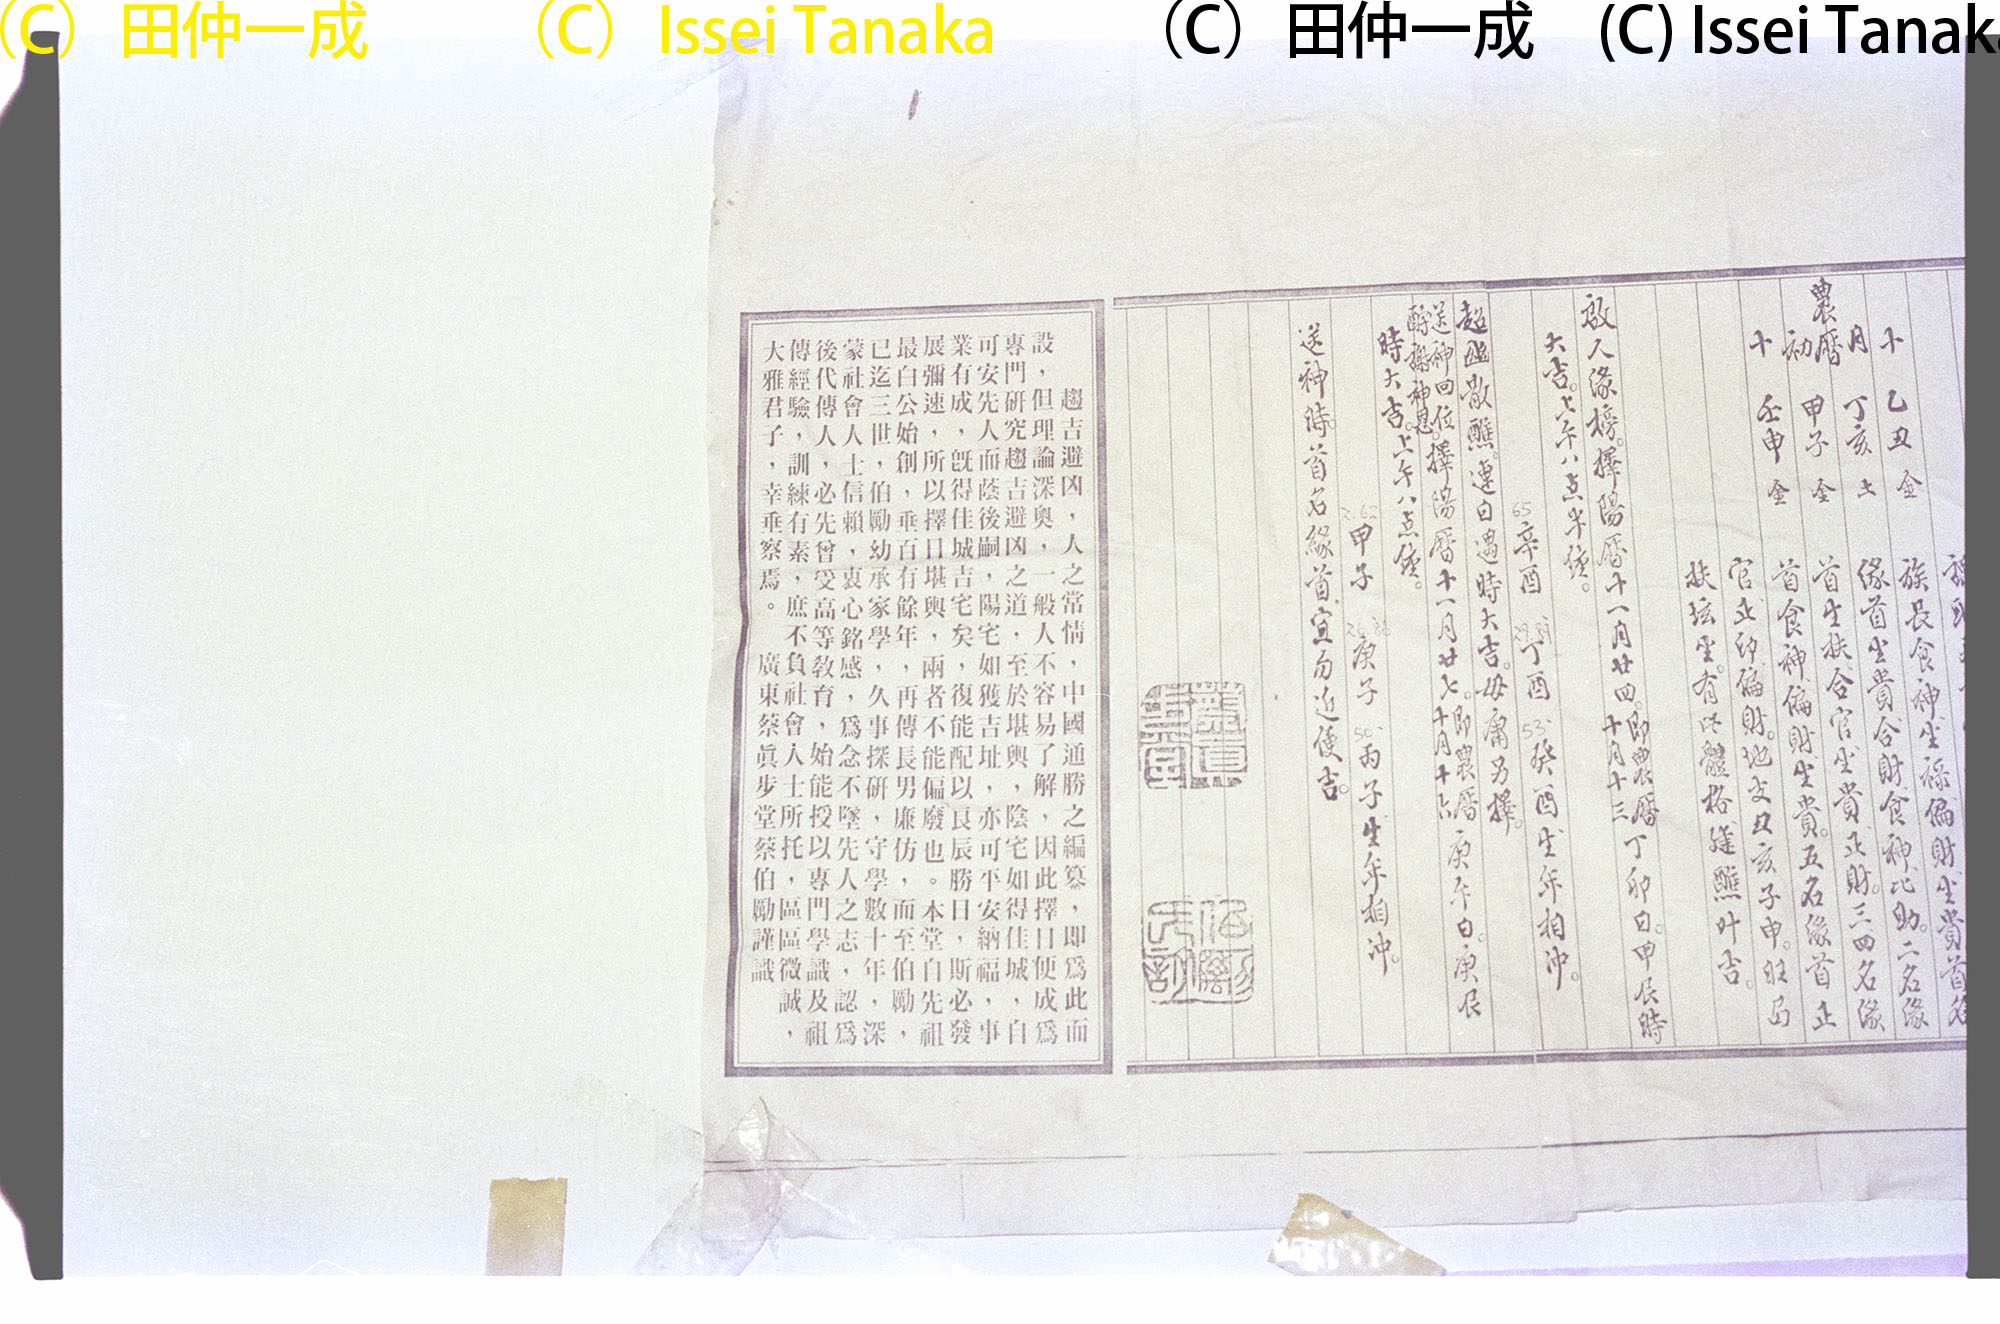 （C） 田仲一成 （C） Issei Tanaka （C） 田仲一成 (C) Issei Tanak
族長食神坐祿偏財坐貴首名
緣首坐貴合財食神比助。二名緣
首生扶合官坐貴正財。三四名緣
首食神偏財坐貴。五名緣首正
官正印偏財。地支丑亥子申。旺局
扶坛坐。有此體格建醮叶吉。
農曆
十 乙丑 金
月 丁亥 土
初 甲子 金
十 壬申 金
啟人緣榜。擇陽曆十一月廿四。即農曆十月十三丁卯日。甲辰時
大吉。上午八点半鐘。
65 辛酉 丁酉 53 癸酉生年相沖。
超幽散醮。連日遇時大吉。毋庸另擇。
送神回位。擇陽曆十一月廿七。即農曆十月十六庚午日。庚辰
酧謝神恩。
時大吉。上午八点鐘。
甲子 庚子 50 丙子生年相沖。
送神時。首名緣首宜勿近便吉。
趨吉避凶，人之常情，中國通勝之編篡，即為此而
設，但理論深奧，一般人不容易了解，因此擇日便成為
專門研究趨吉避凶之道，至於堪輿，陰宅如得佳城，自
可安先人而蔭後嗣，陽宅如獲吉址，亦可平安納福，事
業有成，既得佳城吉宅矣，復能配以良辰勝日，斯必發
展彌速，所以擇日堪輿，兩者不能偏廢也。本堂自先祖
最白公始創，垂百有餘年，再傳長男廉仿，而至伯勵，
已迄三世，伯勵幼承家學，久事探研，守學數十年，深
蒙社會人士信賴，衷心銘感，為念不墜先人之志，認為
後代傳人，必先曾受高等教育，始能授以專門學識及祖
傳經驗，訓練有素，庶不負社會人士所托，區區微誠，
大雅君子，幸垂察焉。 廣東蔡眞步堂蔡伯勵謹識